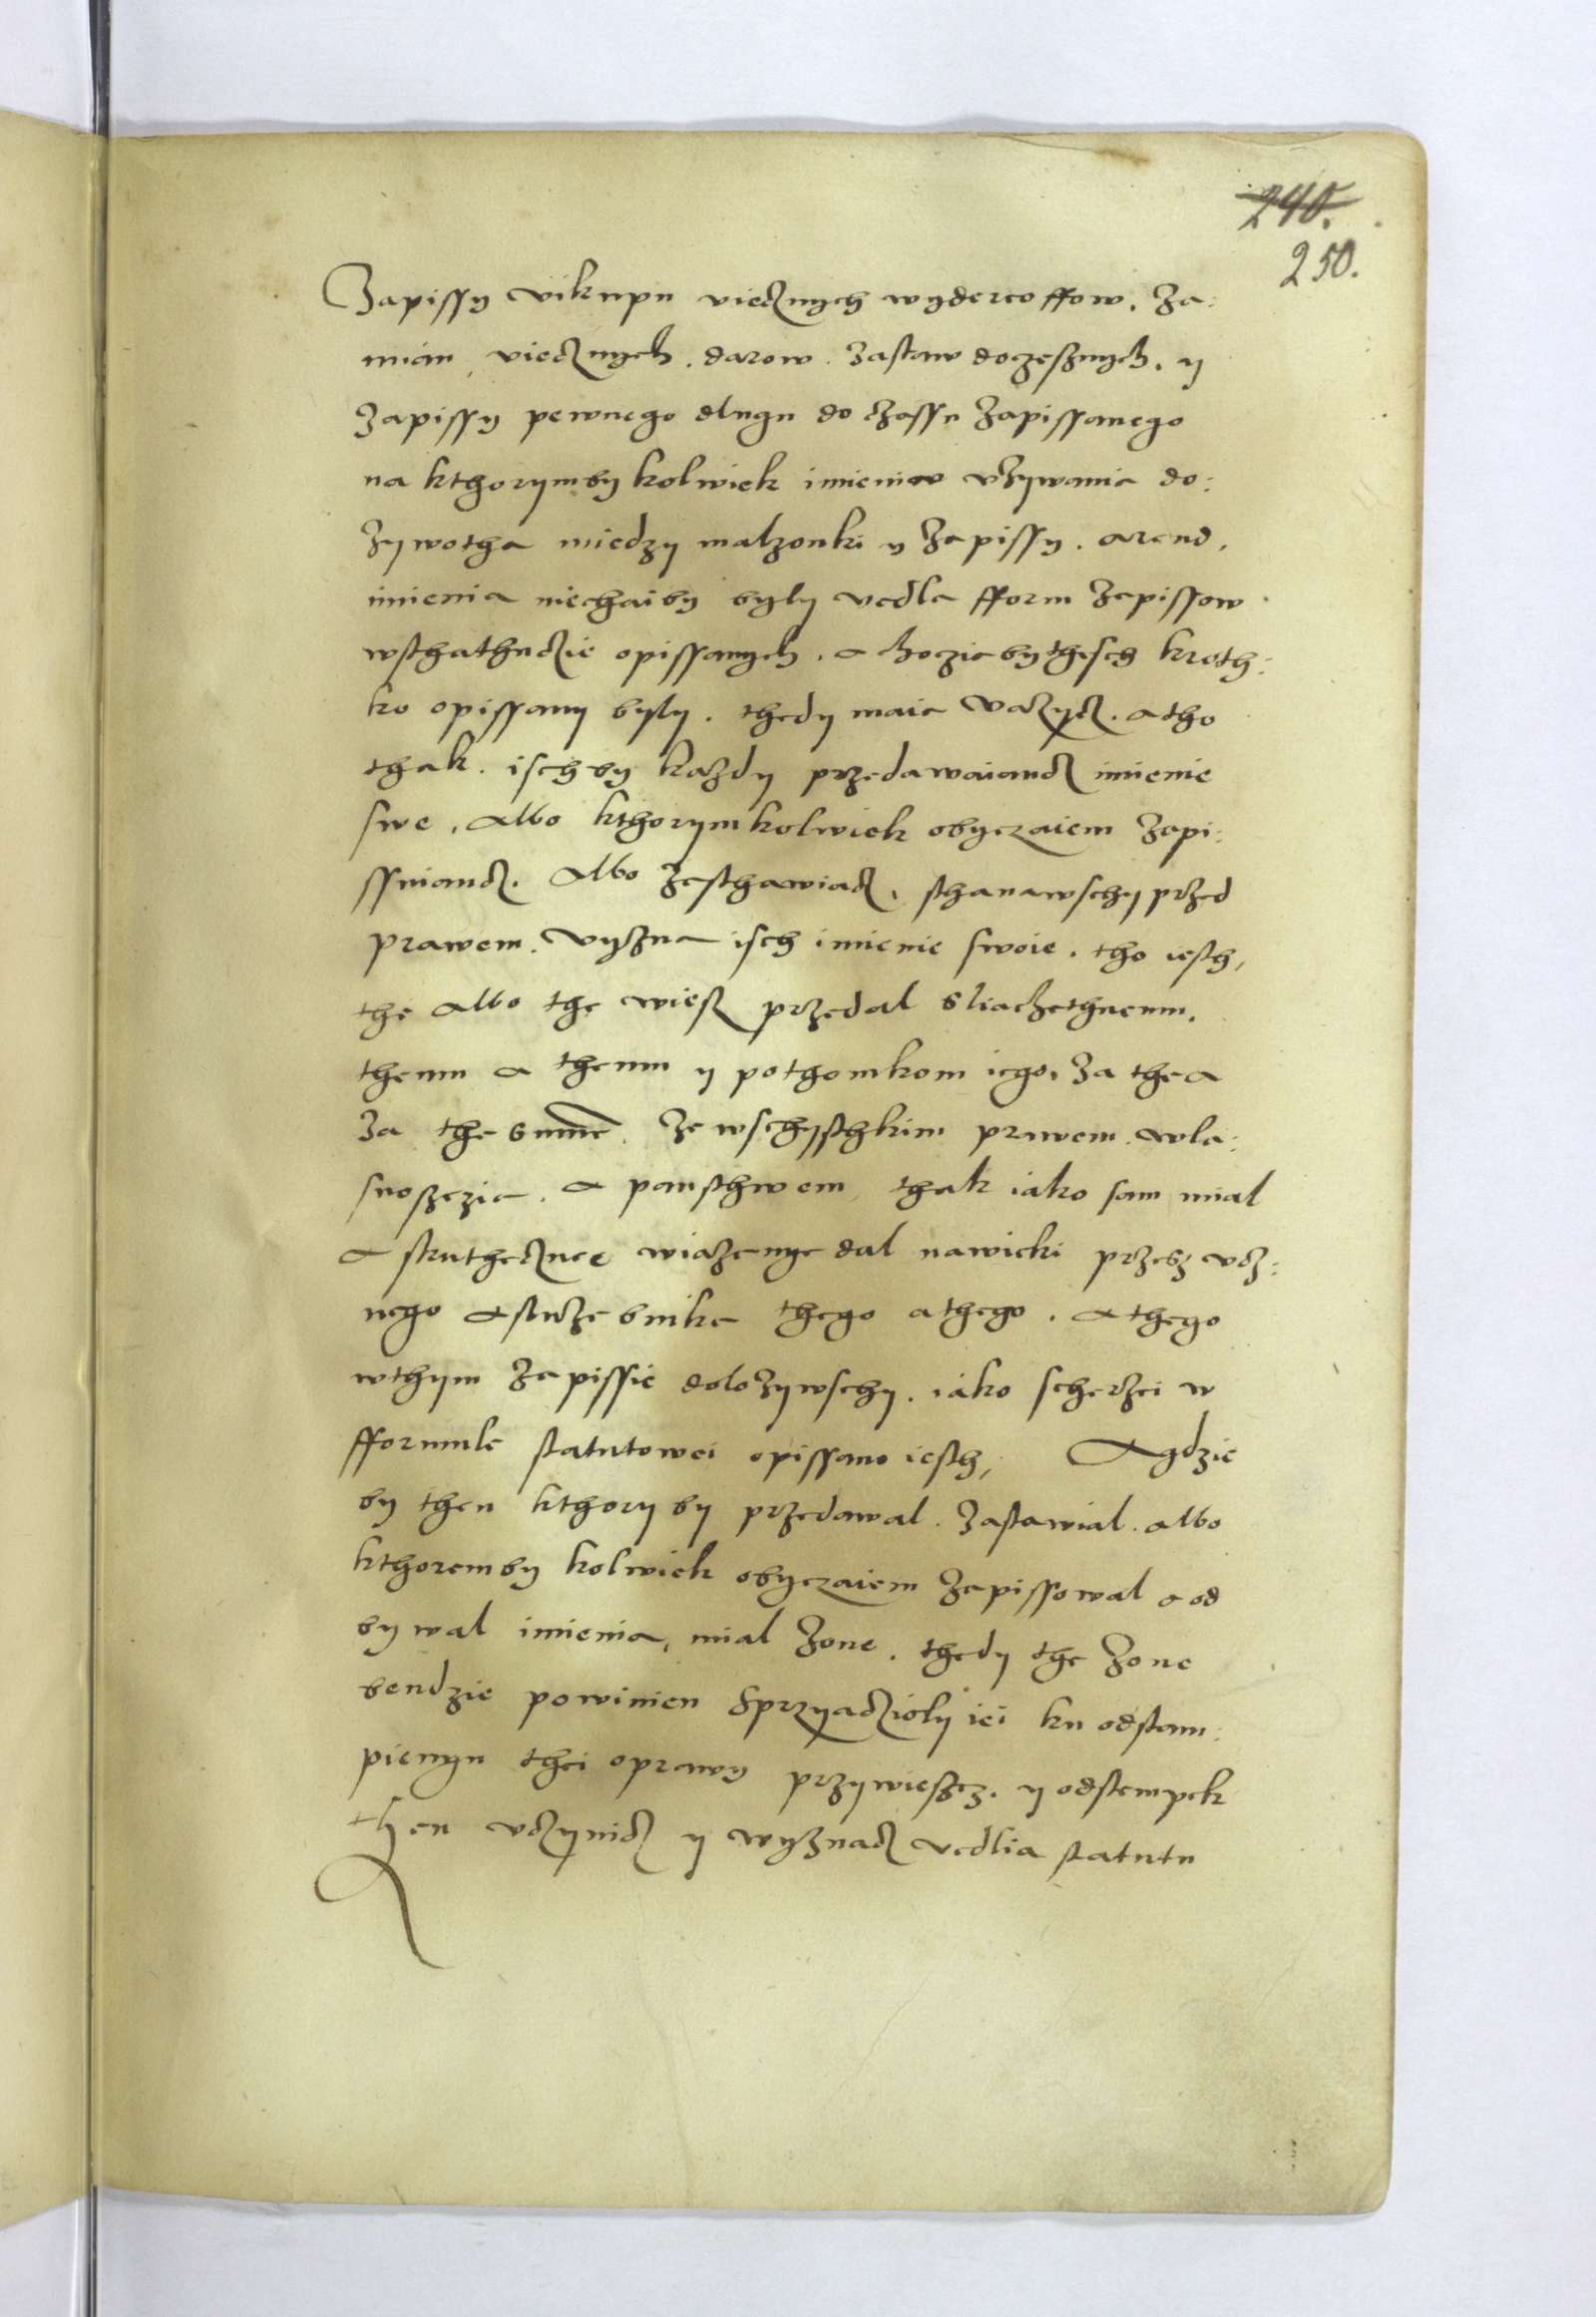 240.
250.
Zapissy vikupu viecznych wydercoffow. Za:
mian viecznych. darow. Zastaw doczesznych. y
Zapissy pewnego dlugu do czassu Zapissanego
na kthorymby kolwiek imieniw vżywania do:
Zywotha miedzy malzonki y Zapissy. arend.
imienia niechaiby byly vedla fform Zapissow
wsthathuczie opissanych. a choczia bythesch kroth:
ko opissany byly. thedy maia Vażycz. a tho
thak. ischby każdy przedawaiancz imienie
swe. Albo kthorymkolwiek obyczaiem Zapi:
ssuiancz. Albo Zasthawiacz. sthanawschy przed
prawem. Vyzna isch imienie swoie. tho iesth,
the Albo the wiesz przedal Sliachethnemu.
themu a themu y pothomkom iego. Za the a
Za the Summe. Ze wschysthkim prawem. wla:
snoszczia. a pansthwem thak iako sam mial
a skutheczne wiazanye dal nawieki przesz vcz:
nego A służebnika thego a thego. a thego
wthym Zapissie dolożywschy. iako scherzei w
fformule statutowei opissano iesth, A gdzie
by then kthory by przedawal. Zastawial. albo
kthoremby kolwiek obyczaiem Zapissowal a od
bywal imienia, mial Zone. thedy the Zone
bendzie powinien Sprzyaczioly iei ku odstam:
pienyu thei oprawy przywieszcz. y odstempek
then vczynicz y wyznacz vedlia statutu